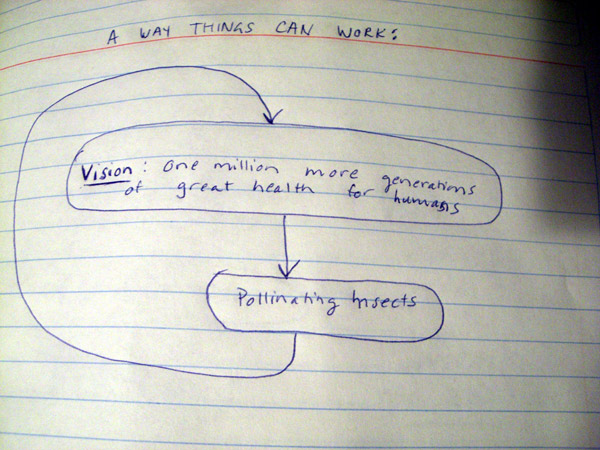 A WAY THINGS CAN WORK:
Vision: one million more generations
of great health for humans
Pollinating Insects